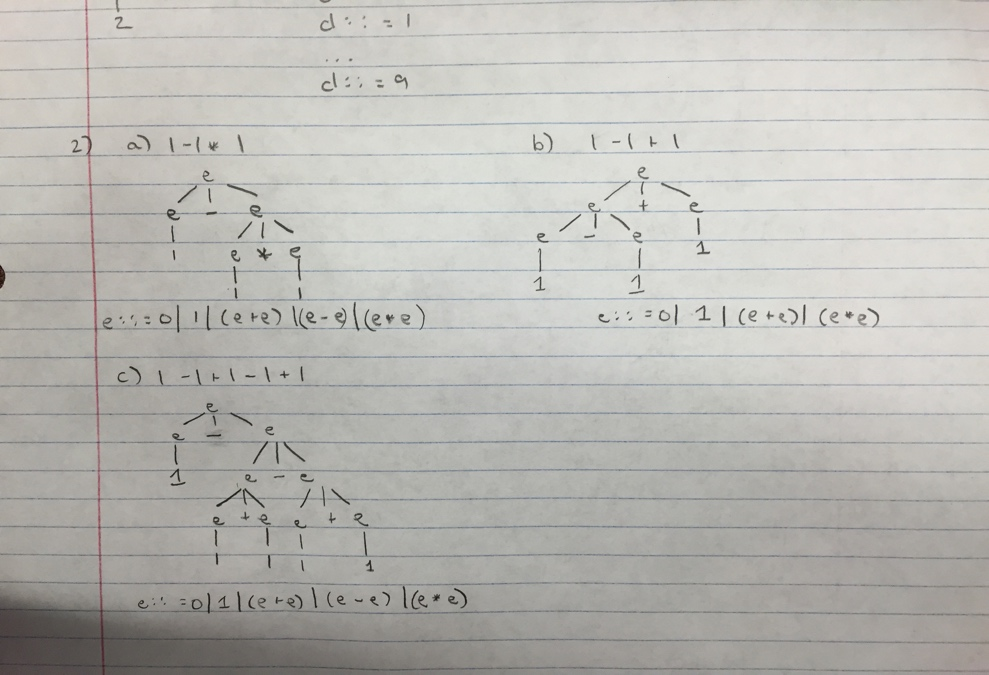 2
d::=1
...
d::=9
2) a) 1-1*1
e
e - e
1 e * e
1 1
e::=0|1|(e+e)|(e-e)|(e*e)
b) 1-1+1
e
e + e
e - e 1
1 1
e::=0|1|(e+e)|(e*e)
c) 1-1+1-1+1
e
e - e
1 e - e
e + e e + e
1 1 1 1
e::=0|1|(e+e)|(e-e)|(e*e)